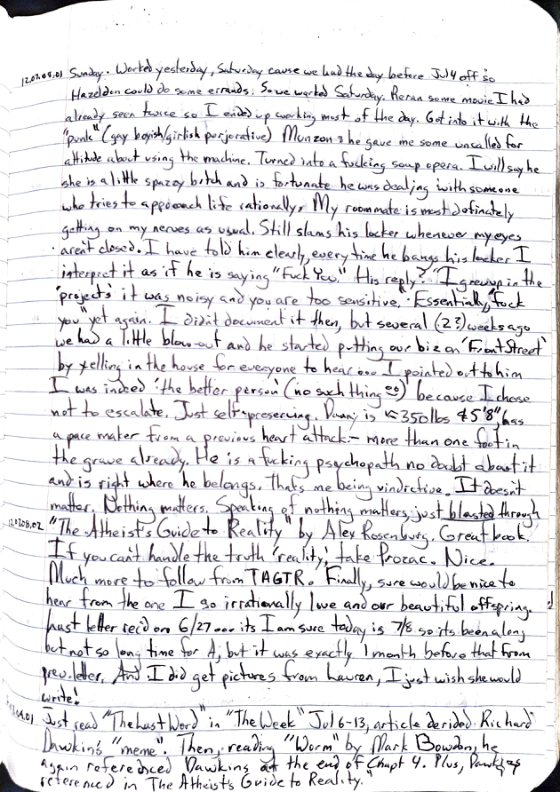 12.07.08.01 Sunday. Worked yesterday, Saturday cause we had the day before Jul 4 off so
Hazeldon could do some errands. So we worked Saturday. Reran some movie I had
already seen twice so I ended up working most of the day. Got into it with the
"punk" (gay boyish/girlish perjorative) Munzon & he gave me some uncalled for
attitude about using the machine. Turned into a fucking soap opera. I will say he
she is a little spazzy bitch and is fortunate he was dealing with someone
who tries to approach life rationally. My roommate is most definately
getting on my nerves as usual. Still slams his locker whenever my eyes
aren't closed. I have told him clearly, every time he bangs his locker I
interpret it as if he is saying "Fuck You." His reply? "I grew up in the
'projects' it was noisy and you are too sensitive." Essentially, "fuck
you" yet again. I didn't document it then, but several (2?) weeks ago
we had a little blow-out and he started putting our biz on 'Front Street'
by yelling in the house for everyone to hear. I pointed out to him
I was indeed 'the better person' (no such thing) because I chose
not to escalate. Just self-preserving. Danny is 350lbs & 5'8", has
a pace maker from a previous heart attack - more than one foot in
the grave already. He is a fucking psychopath no doubt about it
and is right where he belongs. Thats me being vindictive. It doesn't
matter. Nothing matters. Speaking of nothing matters, just blasted through
120708.02 "The Atheist's Guide to Reality" by Alex Rosenburg. Great book.
If you can't handle the truth 'reality,' take Prozac. Nice.
Much more to follow from TAGTR. Finally, sure would be nice to
hear from the one I so irrationally love and our beautiful offspring.
Last letter rec'd on 6/27 ... its I am sure today is 7/8 so its been a long
but not so long time for A, but it was exactly 1 month before that from
prev. letter. And I did get pictures from Lauren, I just wish she would
write!
Just read "The Last Word" in "The Week" Jul 6-13, article derided Richard
Dawkin's "meme". Then, reading "Worm" by Mark Bowdon, he
again referenced Dawkins at the end of Chapt 4. Plus, Dawkins
referenced in The Atheist's Guide to Reality."